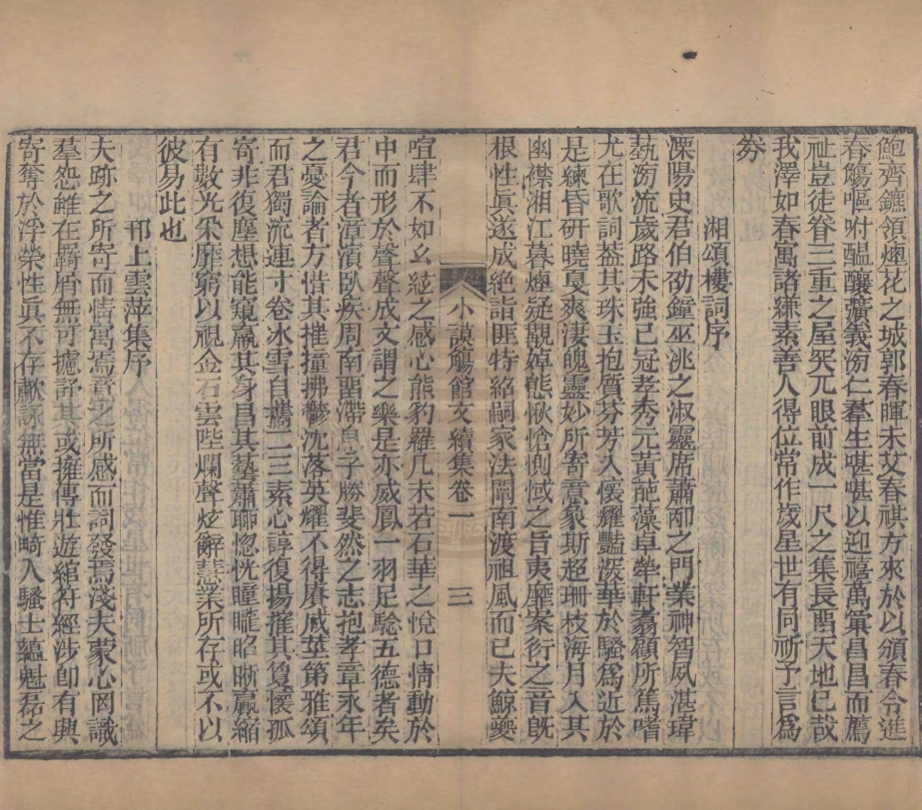 鮑齊鑣領煙花之城郭春暉未艾春祺方來於以頒春令進
春觴嘔咐醞釀彊義洌仁羣生堪堪以迎禧萬彙昌昌而薦
祉豈徒眷三重之屋哭兀眼前成一尺之集長畱天地已哉
我澤如春寓諸縑素善人得位常作歲星世有同祈予言爲
券
湘頌樓詞序
溧陽史君伯劭鐘巫洮之淑靈席蕭邴之門業神智夙湛瑋
藝洌流歲路未強已冠孝秀元黃葩藻卓犖軒翥顧所篤嗜
尤在歌詞葢其珠玉抱質芬芳入懷耀豔淚華於騷爲近於
是練昏研曉戛爽淒魄靈妙所寄意象斯超珊枝海月入其
幽襟湘江暮煙疑觀婥態愀愴惻惐之旨夷靡案衍之音旣
根性眞遂成絶詣匪特紹嗣家法闢南渡祖風而已夫鯨夔
小謨觴館文續集卷一　三
喧肆不如幺絃之感心熊豹羅几未若石華之悅口情動於
中而形於聲聲成文謂之樂是亦威鳳一羽足騐五德者矣
君今者漳濱臥疾周南畱滯息子勝斐然之志抱孝章永年
之憂論者方惜其摧撞拂鬱沈落英耀不得賡咸莖第雅頌
而君獨流連寸卷冰雪自攜二三素心諄復揚搉其夐懷孤
寄非復塵想能窺羸其身昌其藝蕭聊惚恍曈曨昭晰贏縮
有數光采靡窮以視金石雲陛爛聲炫辭悲業所存或不以
彼易此也
邗上雲萍集序
夫跡之所寄而情寓焉意之所感而詞發焉淺夫蒙心罔識
羣怨雖在羇屑無可攄訏其或擁傳壯遊綰符經涉卽有興
寄奪於浮榮性眞不存歗詠無當是惟畸人騷士蘊魁磊之